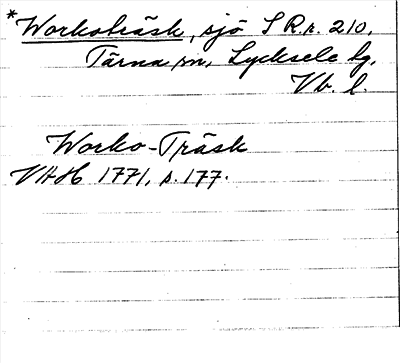 *Workoträsk, sjö S R.n. 210,
Tärna sn, Lycksele lg.
Vb. l.
Worko-Träsk
VHH 1771, s. 177.